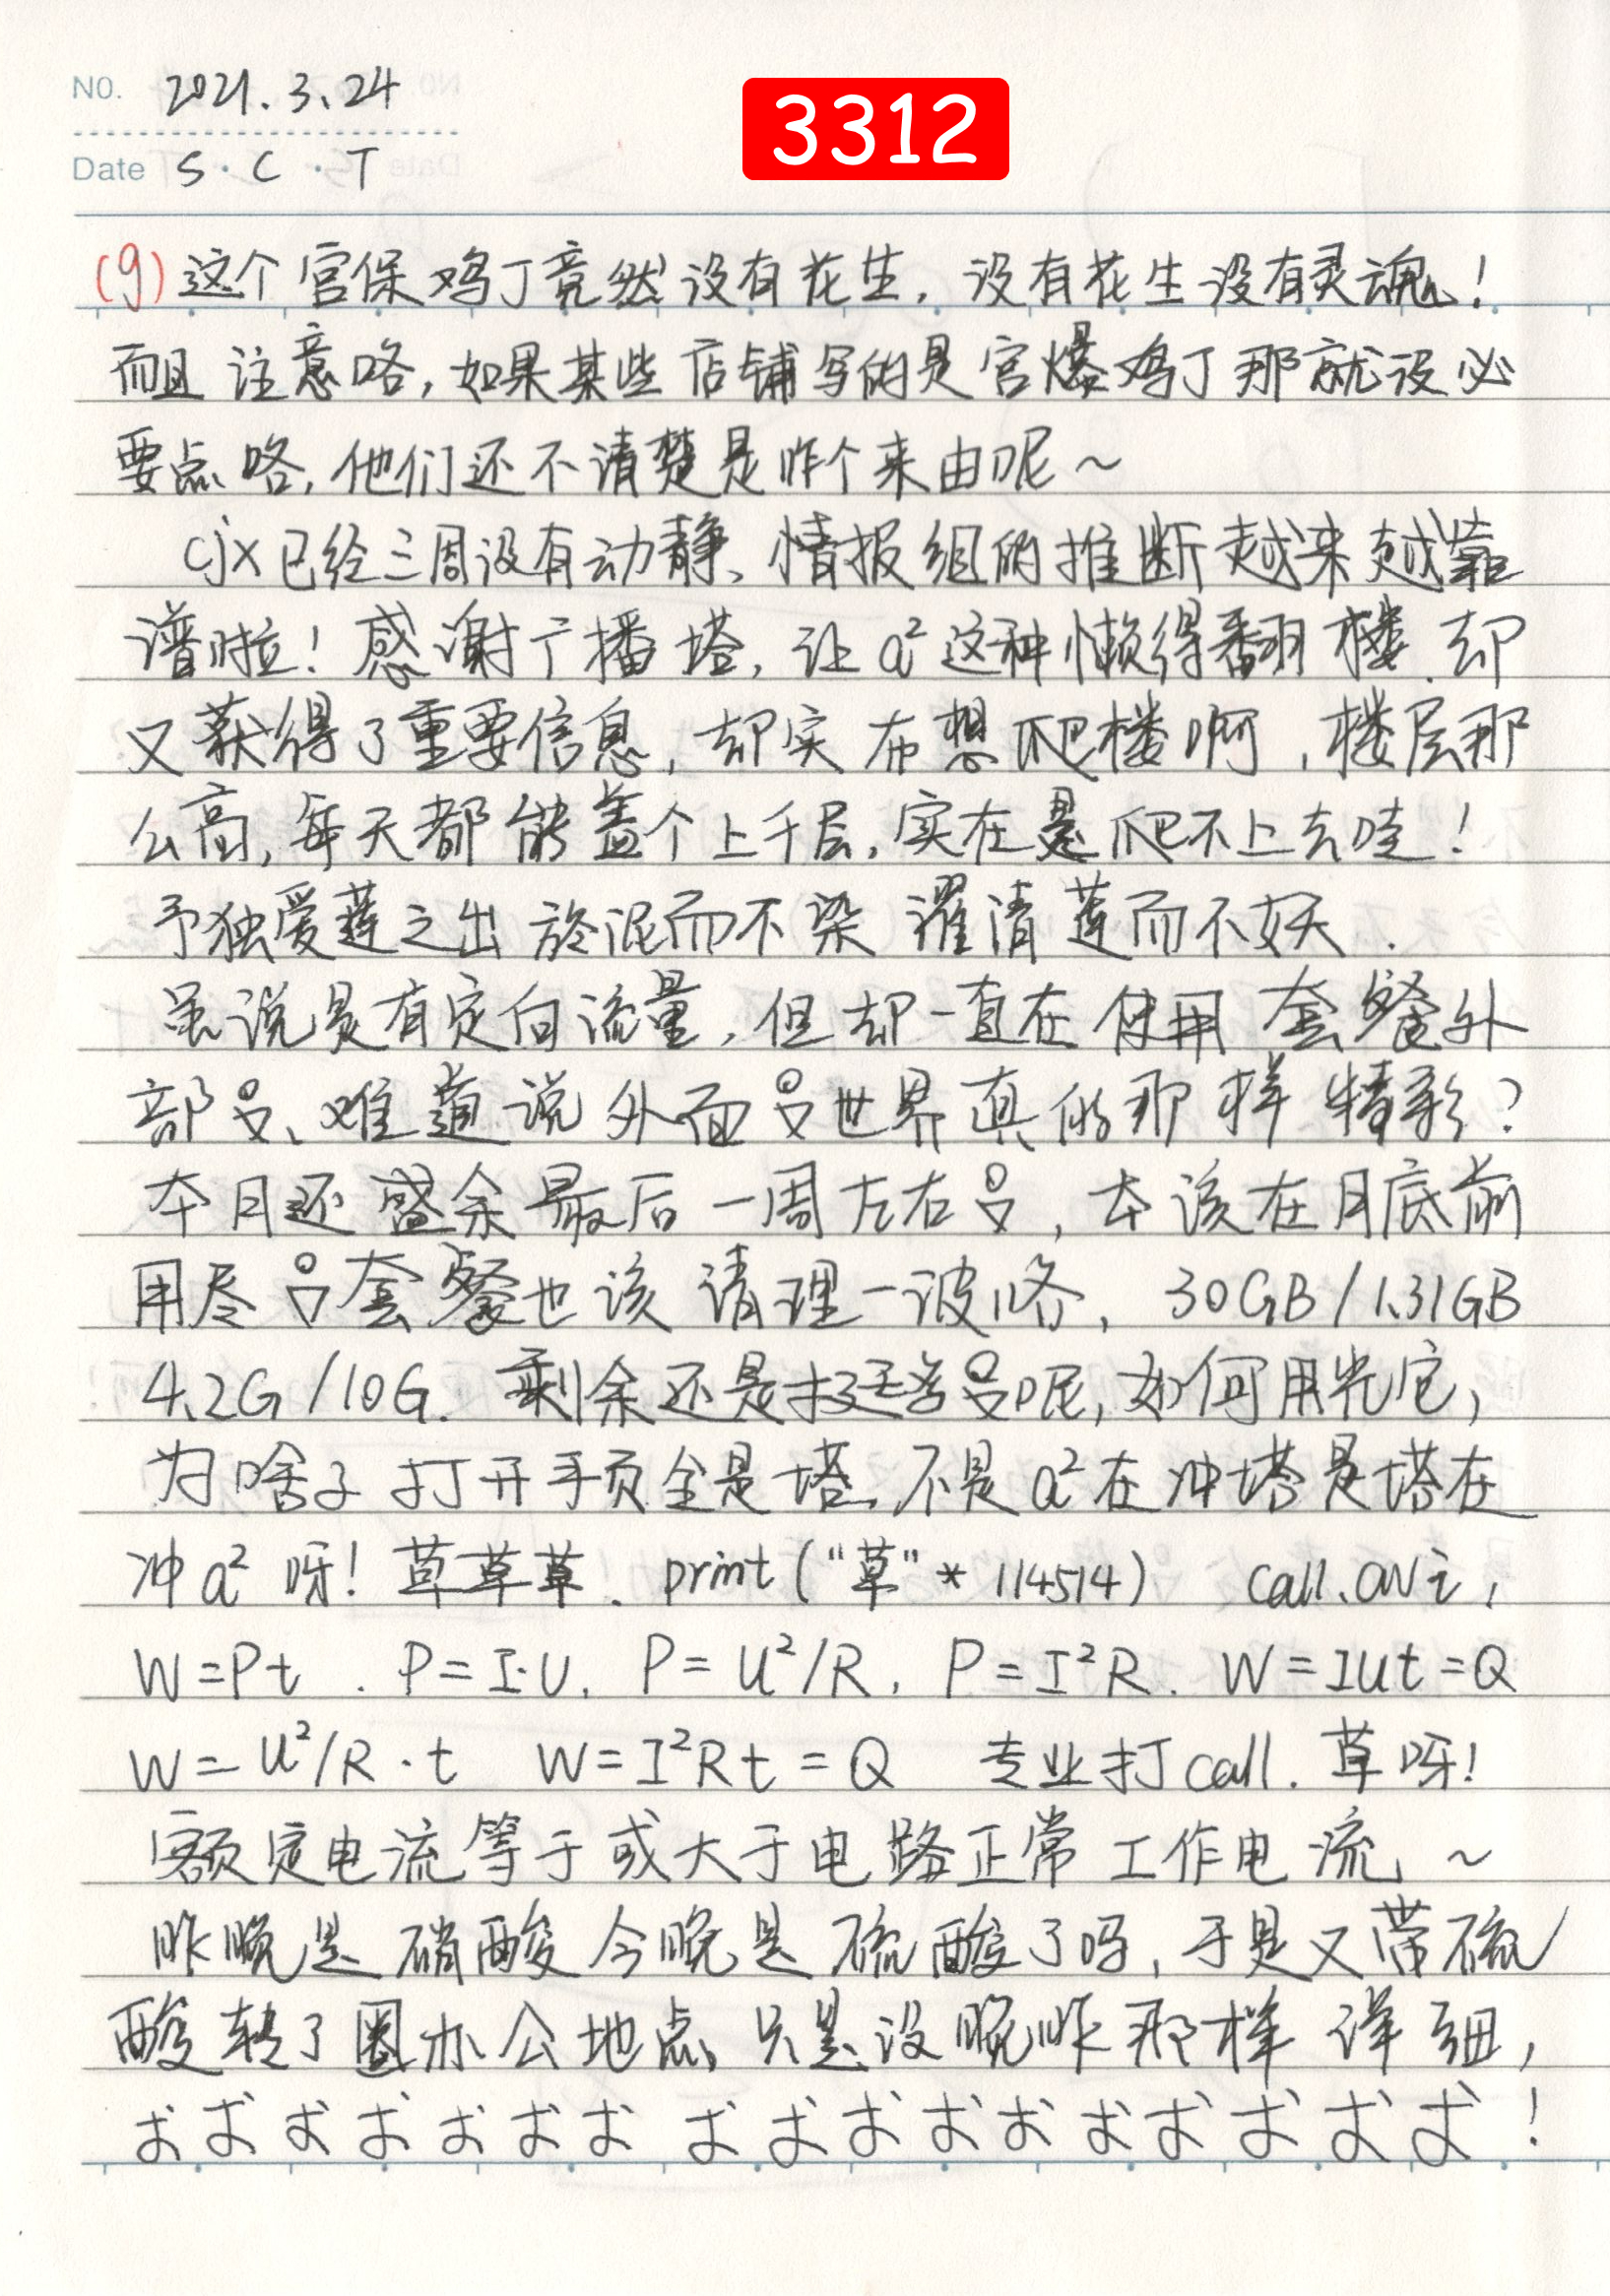 NO. 2021.3.24
3312
Date S·C·T
(9)这个宫保鸡丁竟然没有花生,没有花生没有灵魂!
而且注意咯,如果某些店铺写的是宫爆鸡丁那就没必
要点咯,他们还不清楚是咋个来由呢~
cjx已经三周没有动静、情报组的推断越来越靠
谱啦!感谢广播塔,让a²这种懒得翻楼.却
又获得了重要信息,却实布想爬楼啊,楼层那
么高,每天都能盖个上千层,实在是爬不上去哇!
予独爱莲之出於泥而不染 濯清莲而不妖.
虽说是有定向流量,但却一直在使用套餐外
部呂、难道说外面呂世界真的那样精彩?
本月还盛余最后一周左右呂,本该在月底前
用尽呂套餐也该请理一波咯,30GB/1.31GB
4.2G/10G.剩余还是挺多呂呢,如何用光它,
为啥子打开手页全是塔、不是a²在冲塔是塔在
冲a²呀!草草草.print("草"*114514) call.aWi,
W=Pt.P=I·U.P=U²/R,P=I²R.W=IUt=Q
W=U²/R·t W=I²Rt=Q 专业打call.草呀!
额定电流等于或大于电路正常工作电流~
昨晚是硝酸今晚是硫酸了吗,于是又带硫
酸转了圈办公地点、只是没晚昨那样详细,
!